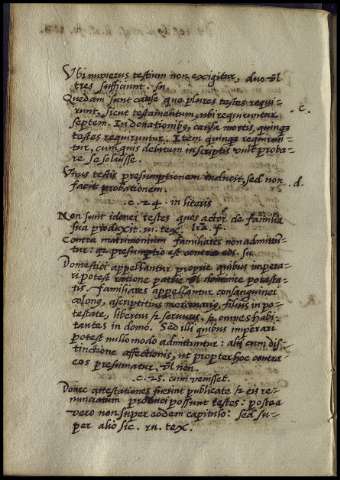 Ubi numerus testium non exigitur, duo vel
tres sufficiunt. in
Quedam sunt causae quae plures testes requi-
runt, sicut testamentum, ubi requiruntur
septem. In donationibus, causa mortis, quinque
testes requiruntur. Item quinque requirun-
tur, cum quis debitum in scriptis vult proba-
re se solvisse.
c.
Unus testis presumptionem inducit, sed non
facit probationem.
d.
c. 24. in literis
Non sunt idonei testes quos actor de familia
sua producit. in. tex.
Contra matrimonium familiares non admittun-
tur: su.
Domestici appellantur proprie quibus impera-
ri potest ratione potesta-
tis. familiares appellantur consanguinei
colon, ascriptitius filius in po-
testate, libertus et servus, et omnes habi-
tantes in domo. Sed illi quibus imperari
potest nullo modo admittuntur: alii cum dis-
tinctione affectionis, ut propter hoc contra
eos presumatur, vel non.
c. 25. cum venisset.
Donec attestationes fuerint publicate et eis re-
nunciatum possunt testes: postea
vero non super eodem capitulo: sed su-
per alio sic. in. tex.